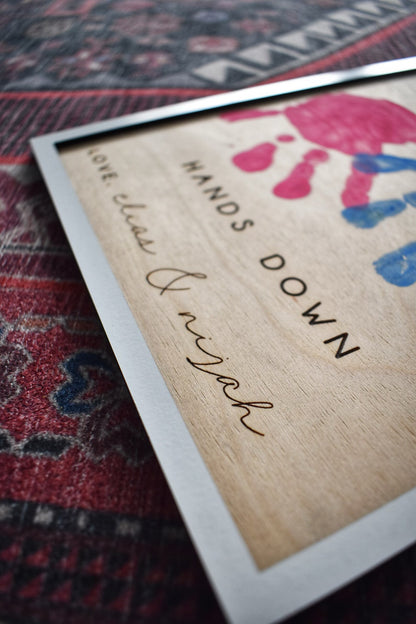 HANDS DOWN
LOVE, elias & nijah